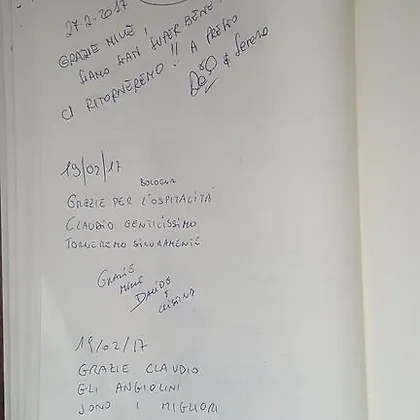 27-2-2017
GRAZIE MILLE!
SIAMO STATI SUPER BENE!
CI RITORNEREMO!! A PRESTO
& Serena
19/02/17
BOLOGNA
GRAZIE PER L'OSPITALITÀ
CLAUDIO GENTILISSIMO
TORNEREMO SICURAMENTE
GRAZIE
MILLE
DAVIDE
&
CRISTINA
19/02/17
GRAZIE CLAUDIO
GLI ANGIOLINI
SONO I MIGLIORI